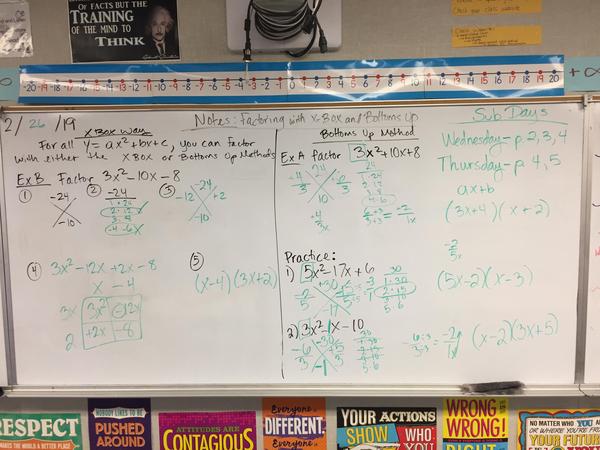 OF FACTS BUT THE
TRAINING
OF THE MIND TO
THINK
-20 -19 -18 -17 -16 -15 -14 -13 -12 -11 -10 -9 -8 -7 -6 -5 -4 -3 -2 -1 0 1 2 3 4 5 6 7 8 9 10 11 12 13 14 15 16 17 18 19 20
+∞
2/26/19
Notes: Factoring with x-Box and Bottoms Up
X BOX Ways
For all y = ax²+bx+c, you can factor
with either the XBOX or Bottoms Up Methods
Ex B Factor 3x²-10x-8
① ② ③
-24
-10
-24
1·24
2·12
3·8
4·6
-24
-12 +2
-10
④ 3x²-12x+2x-8
x -4
3x 3x² -12x
2 +2x -8
⑤ (x-4)(3x+2)
Bottoms Up Method
Ex A Factor 3x²+10x+8
24
10
24
1·24
2·12
3·8
4·6
(3x+4)(x+2)
Practice:
1) 5x²-17x+6
+30
-17
30
1·30
2·15
3·10
5·6
-2
5x
(5x-2)(x-3)
2) 3x²-1x-10
-30
-6 +5
3 3
-1
30
1·30
2·15
3·10
5·6
(x-2)(3x+5)
Sub Days
Wednesday-p. 2, 3, 4
Thursday-p. 4, 5
ax+b
RESPECT
MAKES THE WORLD A BETTER PLACE
NOBODY LIKES TO BE
PUSHED
AROUND
ATTITUDES ARE
CONTAGIOUS
Everyone is
DIFFERENT.
Everyone is
YOUR ACTIONS
SHOW WHO
YOU
WRONG
WRONG!
RIGHT
NO MATTER WHO YOU A
OR WHERE YOU'RE FROM
YOUR FUTURE